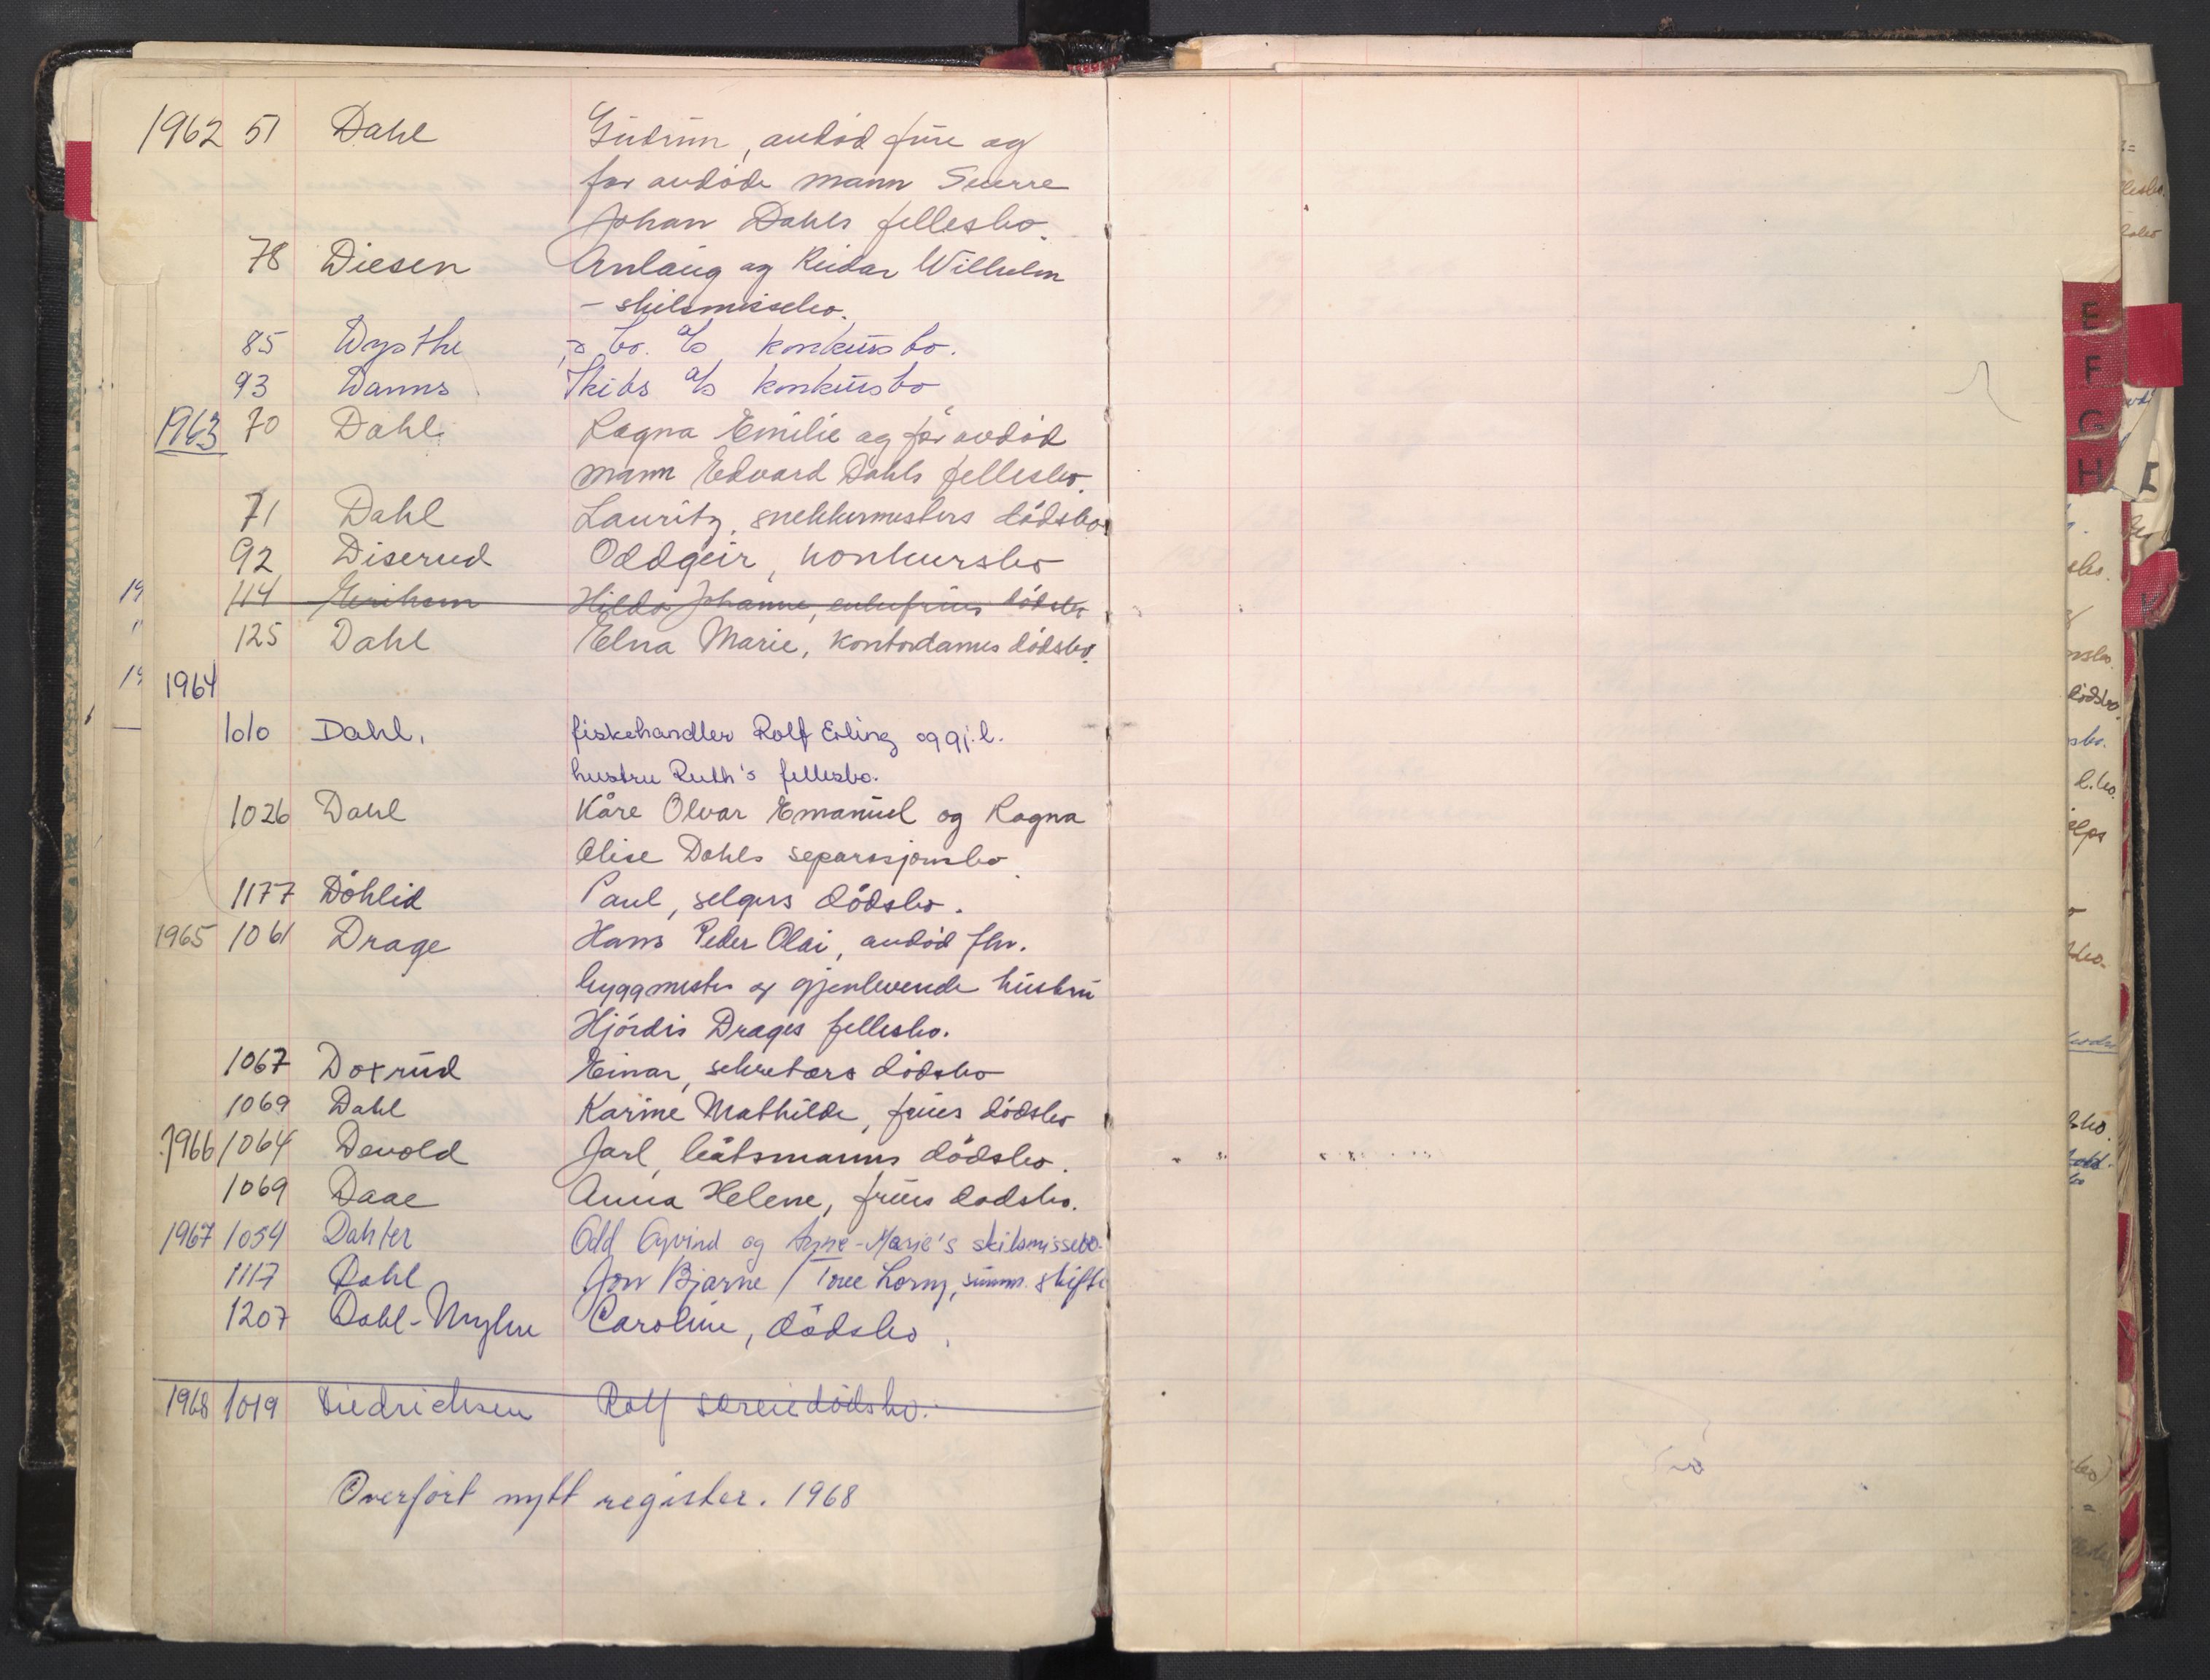 1962 51 Dahl Gudrun, avdød frue og
før avdøde mann Sverre
Johan Dahls fellesbo.
78 Diesen Anlaug og Reidar Wilhelm
- skilsmissebo.
85 & Co. A/S konkursbo.
93 Skibs A/S konkursbo
1963 70 Dahl Ragna Emilie og før avdød
mann Edvard Dahls fellesbo.
71 Dahl Lauritz, snekkermesters dødsbo
92 Diserud Oddgeir, konkursbo
114 Hilda Johanne, enkefrues dødsbo
125 Dahl Elna Marie, kontordames dødsbo.
1964
1010 Dahl, fiskehandler Rolf Erling og gj.l.
hustru Ruth's fellesbo.
1026 Dahl Kåre Olvar Emanuel og Ragna
Alise Dahls separasjonsbo.
1177 Døhlid Paul, selgers dødsbo.
1965 1061 Drage Hans Peder Olai, avdød fhv.
byggmester og gjenlevende hustru
Hjørdis Drages fellesbo.
1067 Doxrud Einar, sekretærs dødsbo
1069 Dahl Karine Mathilde, frues dødsbo
1966 1064 Devold Jarl, båtsmanns dødsbo.
1069 Daae Anna Helene, frues dødsbo.
1967 1054 Dahter Odd Eyvind og Anne-Marie's skilsmissebo.
1117 Dahl Jon Bjarne / Tove Lorny, summ. skifte
1207 Dahl-Myhre Caroline, dødsbo.
1968 1019 Diedrichsen Rolf særeiedødsbo.
Overført nytt register. 1968
E
F
G
H
I
K